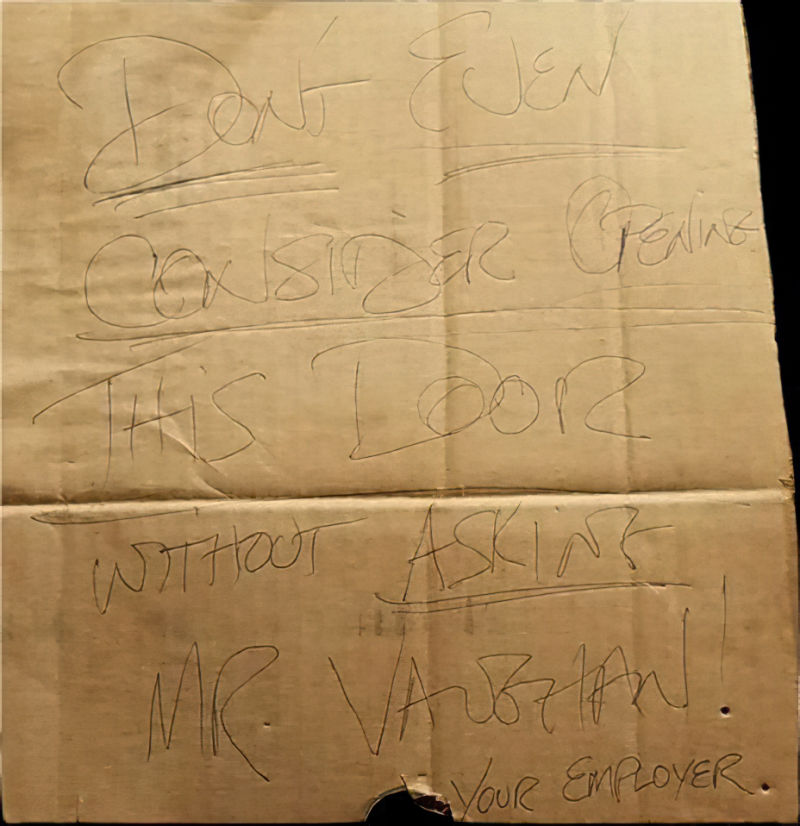 DON'T EVEN
CONSIDER OPENING
THIS DOOR
WITHOUT ASKING
MR. VAUGHAN!
YOUR EMPLOYER.